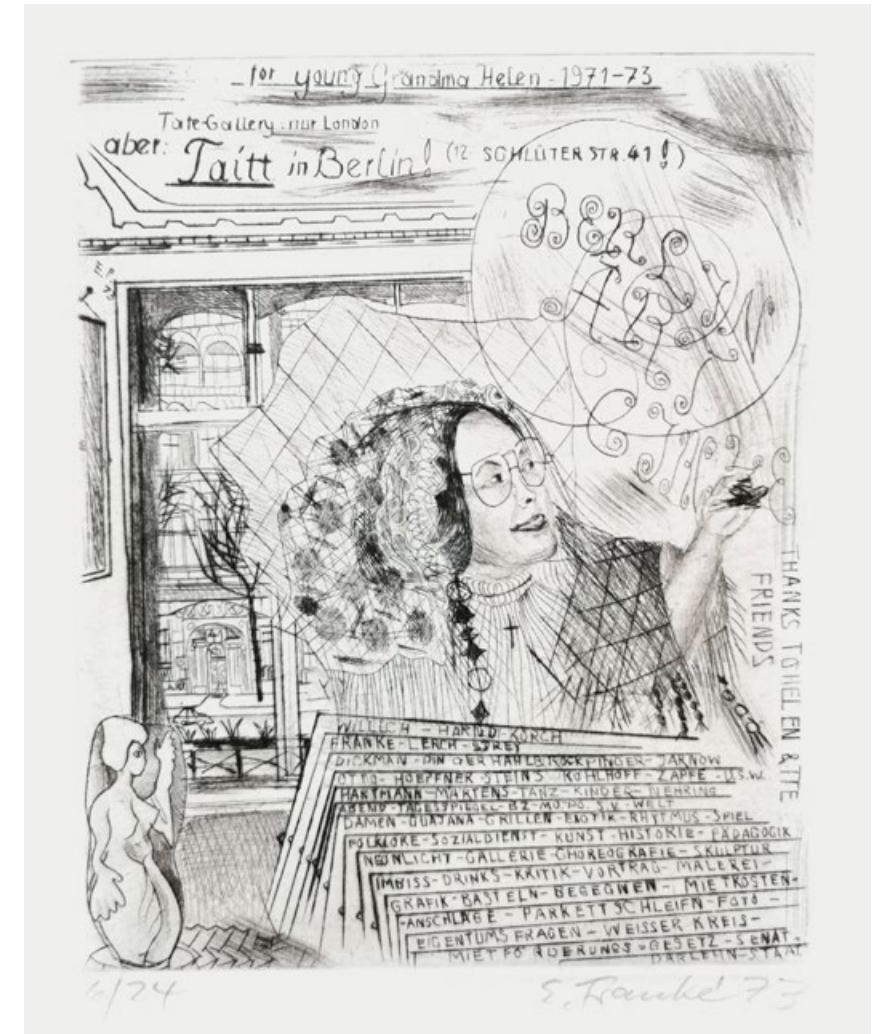 for young Grandma Helen - 1971-73
Tate-Gallery: nur London
aber: Taitt in Berlin! (12 SCHLÜTER STR. 41!)
BERLIN
E.F. 73
THANKS TO HELEN & ITE
FRIENDS
WILLICH - HARNDI - KORCH
FRANKE - LERCH - STREY
DICKMAN - DIN DER HAHLBROCK PINGER - JARNOW
OTTO - HOEPFNER STEINS KOHLHOFF - ZAPFE - U.S.W.
HARTMANN - MARTENS - TANZ - KINDER - NEHRING
ABEND - TAGESSPIEGEL - BZ - MO.PO. S.V. - WELT
DAMEN - GUAJANA - GRILLEN - EXOTIK - RHYTMUS - SPIEL
FOLKLORE - SOZIALDIENST - KUNST - HISTORIE - PÄDAGOGIK
NEONLICHT - GALLERIE - CHOREOGRAFIE - SKULPTUR
IMBISS - DRINKS - KRITIK - VORTRAG - MALEREI -
GRAFIK - BASTELN - BEGEGNEN - MIETKOSTEN -
-ANSCHLÄGE - PARKETT SCHLEIFN - FOTO -
EIGENTUMS FRAGEN - WEISSER KREIS -
MIETFÖRDERUNGS - GESETZ - SENAT -
DARLEHN - STAAT
6/24
E. Franké 73